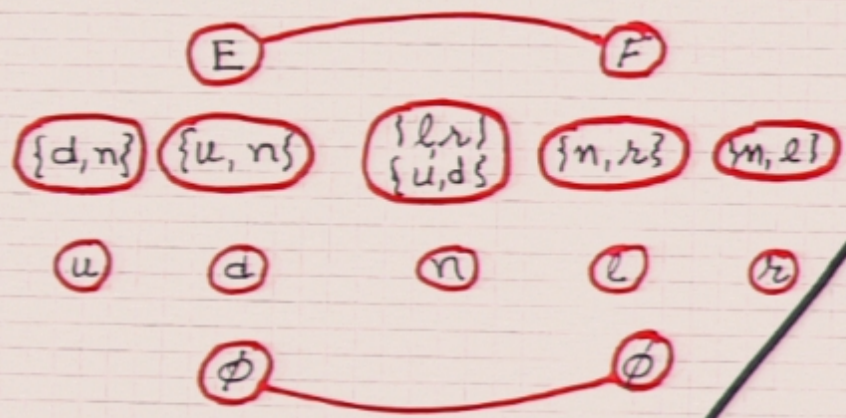 E F
{d,n} {u,n} {l,r} {n,r} {n,l}
{u,d}
u d n l r
φ φ